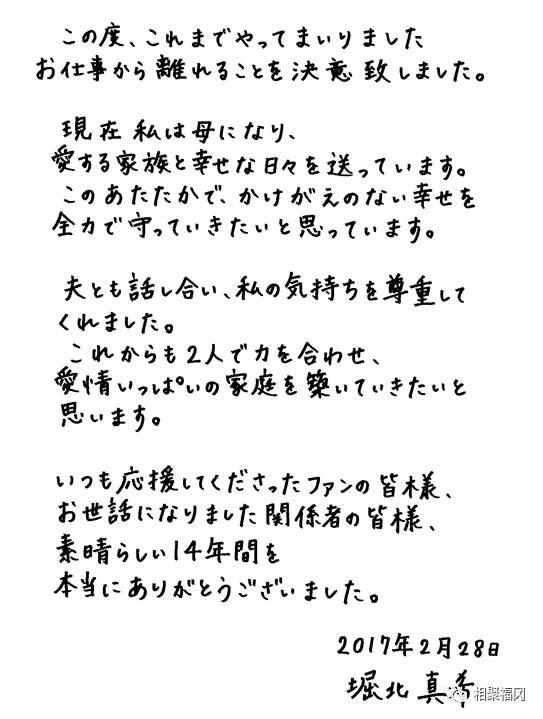 この度、これまでやってまいりました
お仕事から離れることを決意致しました。
現在 私は母になり、
愛する家族と幸せな日々を送っています。
このあたたかで、かけがえのない幸せを
全力で守っていきたいと思っています。
夫とも話し合い、私の気持ちを尊重して
くれました。
これからも2人で力を合わせ、
愛情いっぱいの家庭を築いていきたいと
思います。
いつも応援してくださったファンの皆様、
お世話になりました関係者の皆様、
素晴らしい14年間を
本当にありがとうございました。
2017年2月28日
堀北真希
相聚福冈